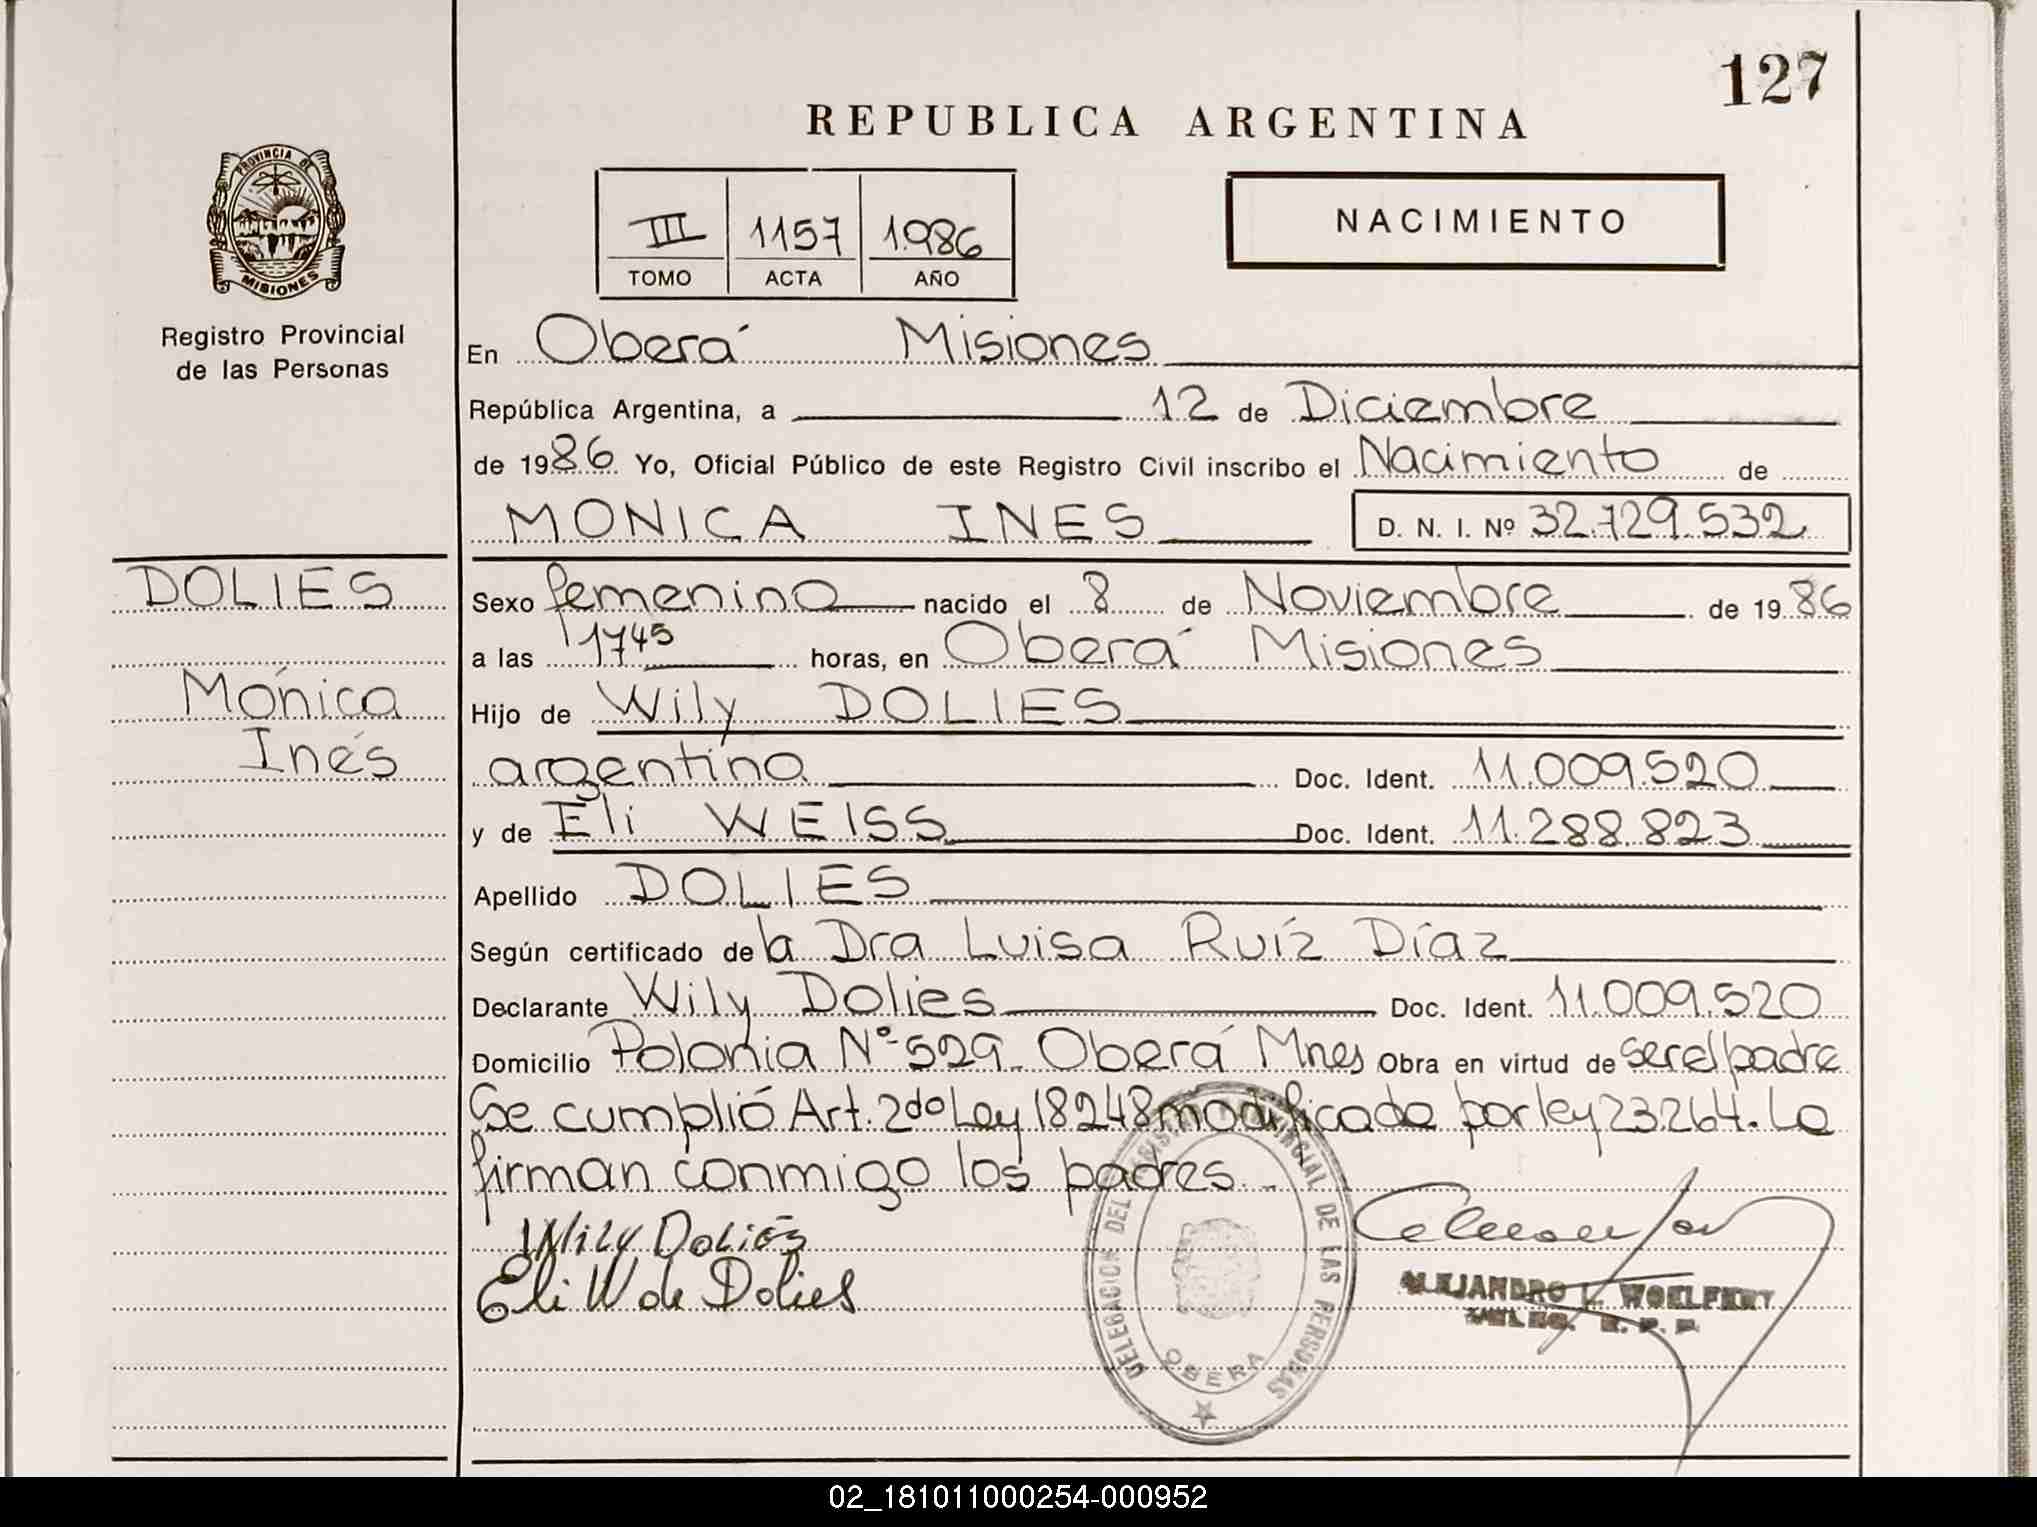 127
REPUBLICA ARGENTINA
PROVINCIA DE
MISIONES
Registro Provincial
de las Personas
III 1157 1.986
TOMO ACTA AÑO
NACIMIENTO
En Oberá Misiones
República Argentina, a 12 de Diciembre
de 1986 Yo, Oficial Público de este Registro Civil inscribo el Nacimiento de
MONICA INES D. N. I. Nº 32.729.532
DOLIES
Mónica
Inés
Sexo femenino nacido el 8 de Noviembre de 1986
a las 1745 horas, en Oberá Misiones
Hijo de Wily DOLIES
argentino Doc. Ident. 11.009.520
y de Eli WEISS Doc. Ident. 11.288.823
Apellido DOLIES
Según certificado de la Dra Luisa Ruíz Díaz
Declarante Wily Dolies Doc. Ident. 11.009.520
Domicilio Polonia Nº 529. Oberá Mnes Obra en virtud de ser el padre
Se cumplió Art. 2do Ley 18248 modificada por ley 23264. La
firman conmigo los padres.
Wily Dolies
Eli W de Dolies
DELEGACION DEL REGISTRO PROVINCIAL DE LAS PERSONAS
OBERA
ALEJANDRO L. WOELFERT
R. P. P.
02_181011000254-000952